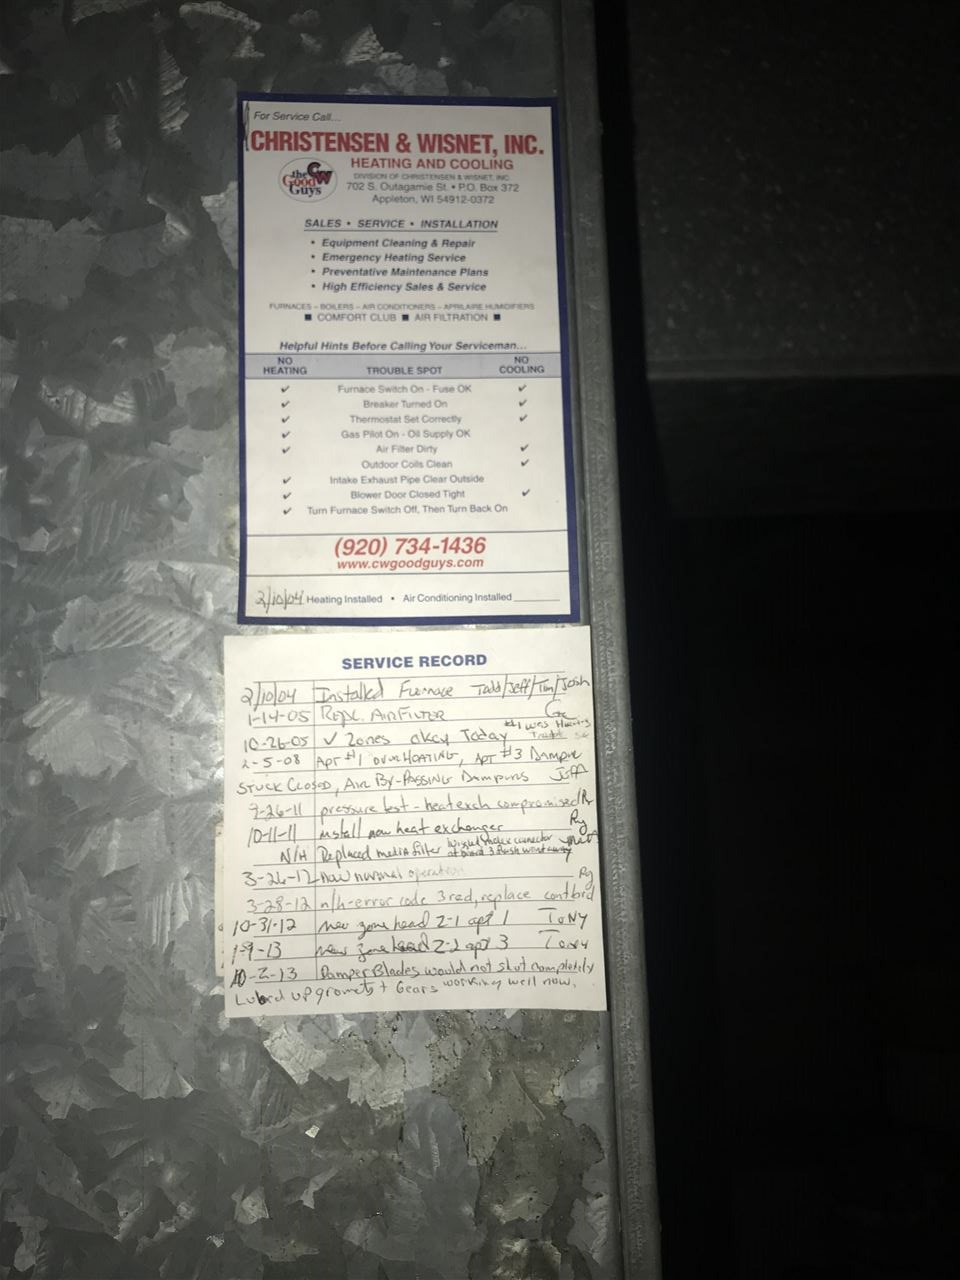 For Service Call...
CHRISTENSEN & WISNET, INC.
HEATING AND COOLING
the CW Good Guys
DIVISION OF CHRISTENSEN & WISNET, INC.
702 S. Outagamie St. • P.O. Box 372
Appleton, WI 54912-0372
SALES • SERVICE • INSTALLATION
• Equipment Cleaning & Repair
• Emergency Heating Service
• Preventative Maintenance Plans
• High Efficiency Sales & Service
FURNACES – BOILERS – AIR CONDITIONERS – APRILAIRE HUMIDIFIERS
■ COMFORT CLUB ■ AIR FILTRATION ■
Helpful Hints Before Calling Your Serviceman...
NO HEATING TROUBLE SPOT NO COOLING
✔ Furnace Switch On - Fuse OK ✔
✔ Breaker Turned On ✔
✔ Thermostat Set Correctly ✔
✔ Gas Pilot On - Oil Supply OK
✔ Air Filter Dirty ✔
Outdoor Coils Clean ✔
✔ Intake Exhaust Pipe Clear Outside
✔ Blower Door Closed Tight ✔
✔ Turn Furnace Switch Off, Then Turn Back On
(920) 734-1436
www.cwgoodguys.com
2/10/04 Heating Installed • Air Conditioning Installed
SERVICE RECORD
2/10/04 Installed Furnace Todd/Jeff/Tim/Josh
1-14-05 Repl. AIR FILTER
10-26-05 ✓ Zones okay Today #1 was Having Trouble
2-5-08 APT #1 OVERHEATING, APT #3 Damper
STUCK CLOSED, AIR BY-PASSING DAMPERS Jeff
9-26-11 pressure test - heat exch compromised
10-11-11 install new heat exchanger Ry
N/H Replaced media filter connector
3-26-12 now normal operation Ry
3-28-12 n/h-error code 3 red, replace cont brd
10-31-12 new zone head Z-1 apt 1 TONY
1-9-13 new zone head Z-2 apt 3 TONY
10-2-13 Damper Blades would not shut completely
Lubed up gromets + Gears working well now.